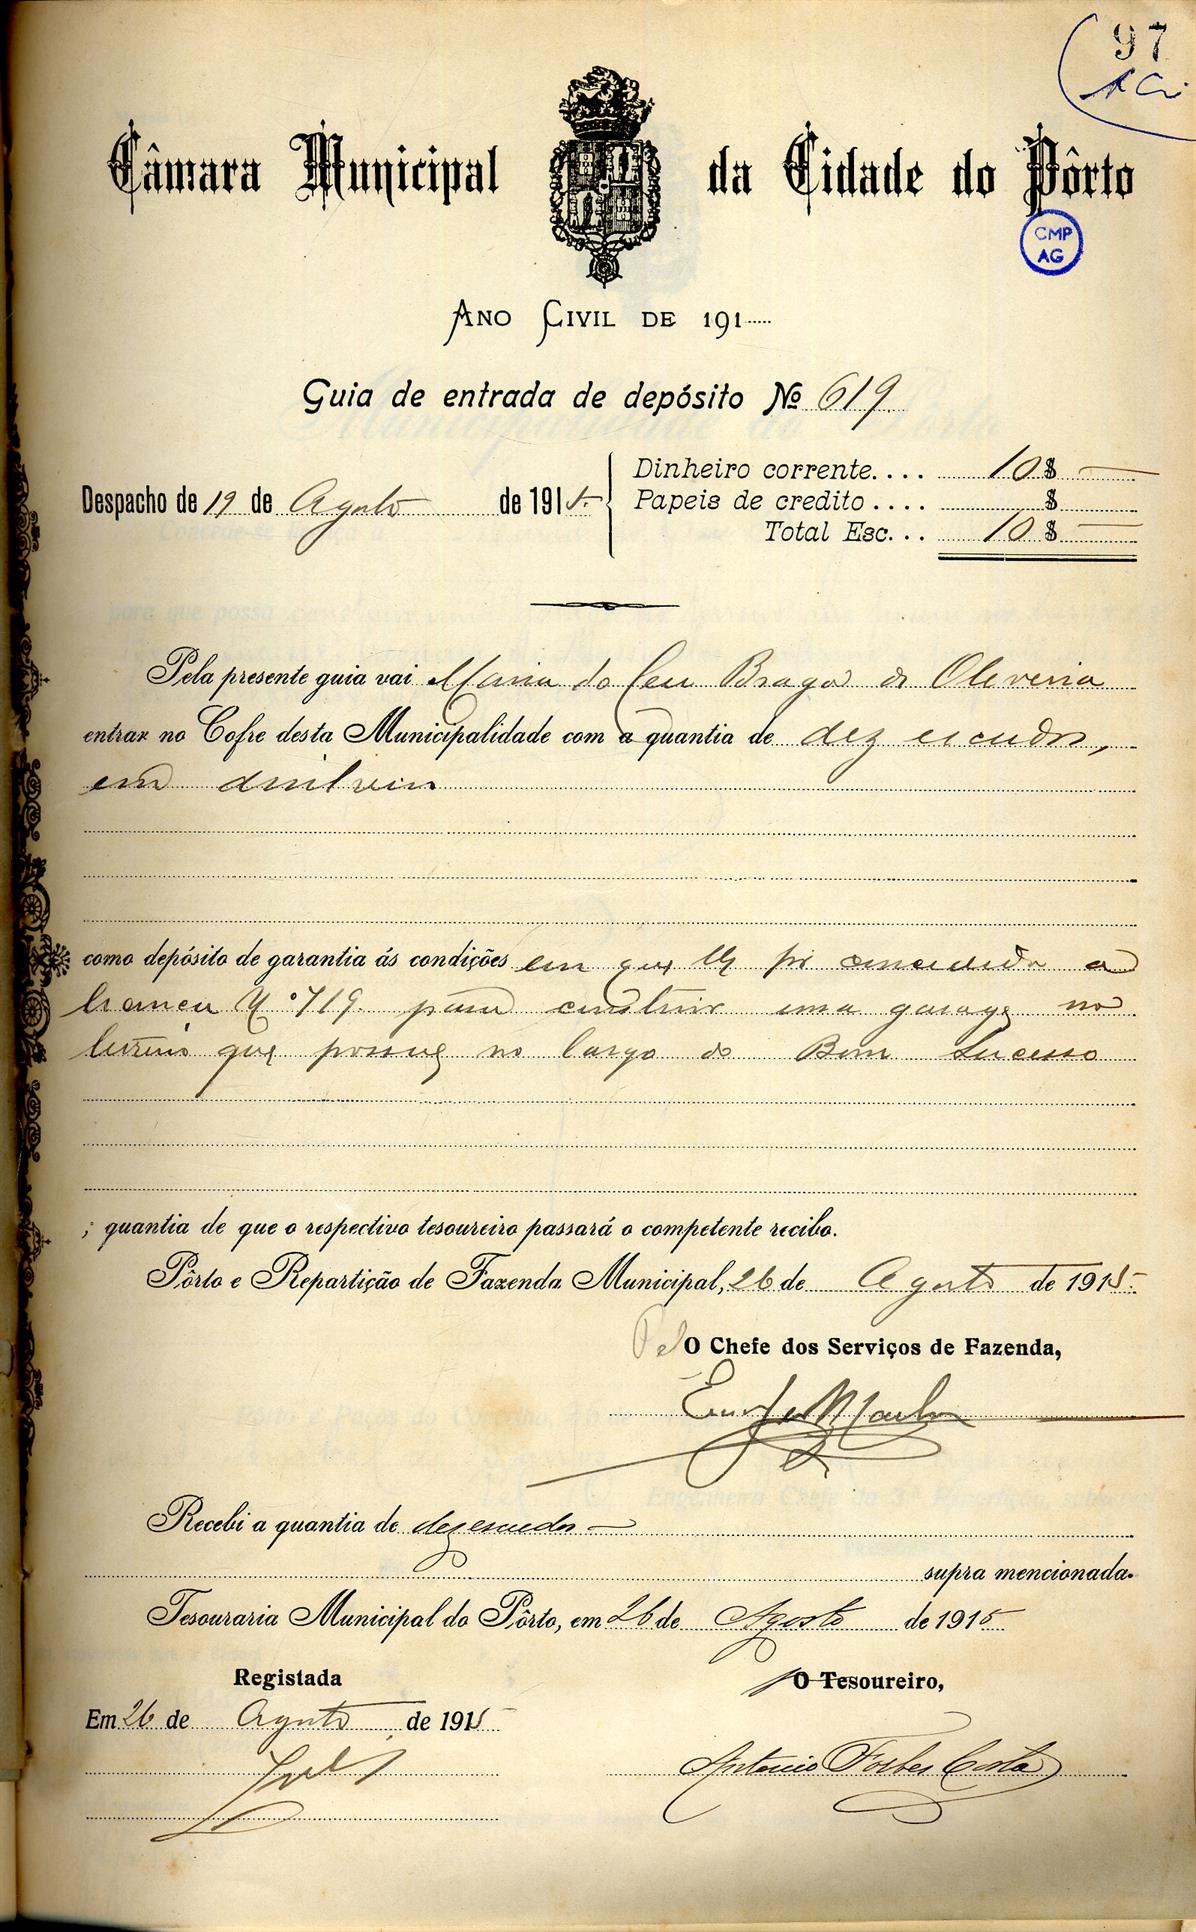 97
Câmara Municipal da Cidade do Pôrto
CMP
AG
Ano Civil de 191
Guia de entrada de depósito Nº 619
Despacho de 19 de Agosto de 1915
Dinheiro corrente.... 10$
Papeis de credito.... $
Total Esc... 10$
Pela presente guia vai Maria do Ceu Braga de Oliveira
entrar no Cofre desta Municipalidade com a quantia de dez escudos,
em dinheiro
como depósito de garantia ás condições em que lhe foi concedida a
licença N.º 719 para construir uma garage no
terreno que possue no largo do Bom Sucesso
; quantia de que o respectivo tesoureiro passará o competente recibo.
Pôrto e Repartição de Fazenda Municipal, 26 de Agosto de 1915
Pel O Chefe dos Serviços de Fazenda,
Recebi a quantia de dez escudos
supra mencionada.
Tesouraria Municipal do Pôrto, em 26 de Agosto de 1915
Registada
O Tesoureiro,
Em 26 de Agosto de 1915
Antonio Forbes Costa